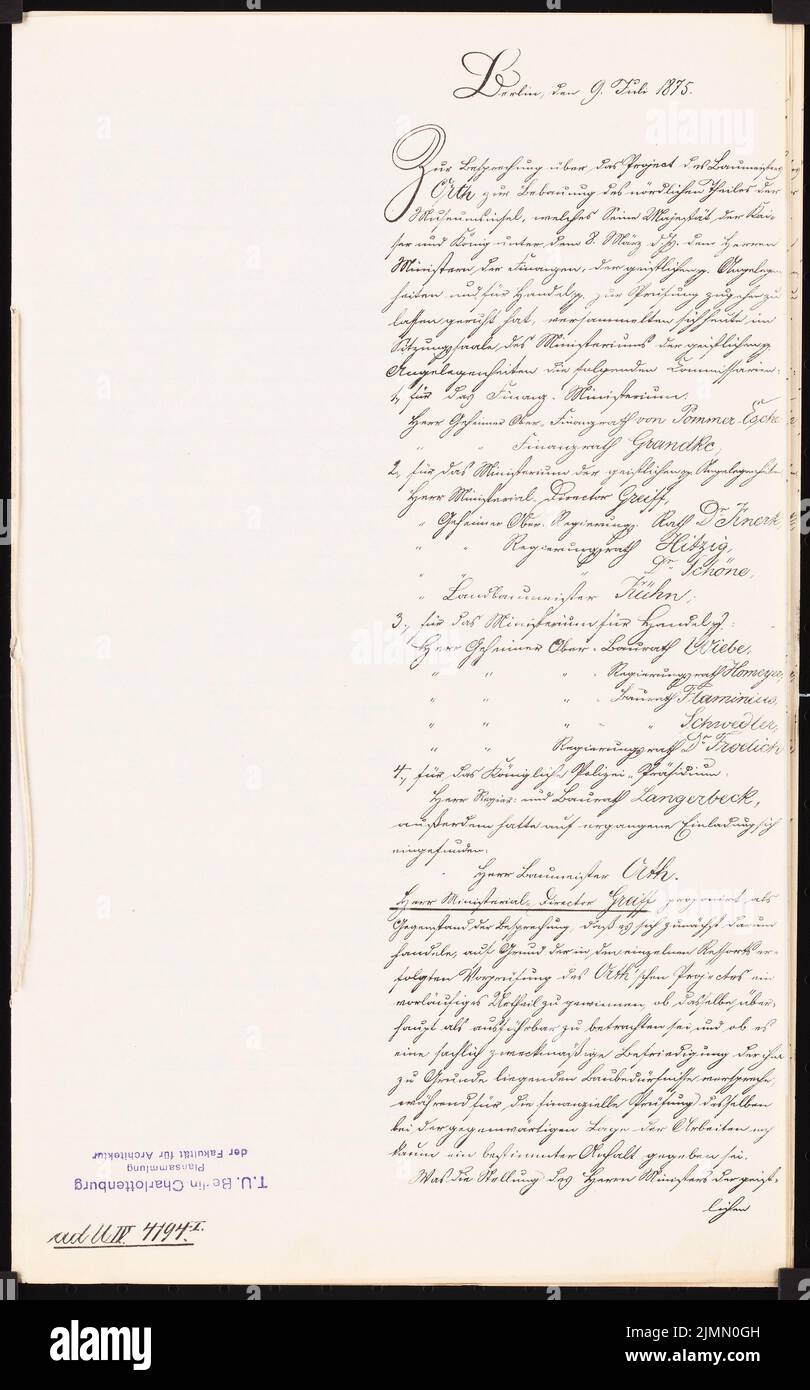 Berlin, den 9. Juli 1875.
Zur Besprechung über das Project des Baumeisters
Orth zur Bebauung des nördlichen Theiles der
Museumsinsel, welches Seine Majestät der Kai-
ser und König unter dem 8. März d. J. den Herren
Ministern der Finanzen, der geistlichen p. Angelegen-
heiten und für Handel p. zur Prüfung zugehen zu
lassen geruht hat, versammelten sich heute im
Sitzungssaale des Ministeriums der geistlichen p.
Angelegenheiten die folgenden Commissarien:
1., für das Finanz-Ministerium:
Herr Geheimer Ober-Finanzrath von Pommer-Esche
" " Finanzrath Grandke,
2., für das Ministerium der geistlichen p. Angelegenheiten
Herr Ministerial-Director Greiff,
" Geheimer Ober-Regierungs-Rath Dr. Knerk,
" " Regierungsrath Hitzig,
" " " Dr. Schöne,
" Landbaumeister Kühn;
3., für das Ministerium für Handel p.:
Herr Geheimer Ober-Baurath Wiebe,
" " " -Regierungsrath Homeyer,
" " " -Baurath Flaminius,
" " " " Schwedler,
" " Regierungsrath Dr. Froelich
4., für das Königliche Polizei-Präsidium:
Herr Regier- und Baurath Langerbeck,
außerdem hatte auf ergangene Einladung sich
eingefunden:
Herr Baumeister Orth.
Herr Ministerial-Director Greiff proponirt als
Gegenstand der Besprechung, daß es sich zunächst darum
handele, auf Grund der in den einzelnen Ressorts er-
folgten Vorprüfung des Orth'schen Projectes ein
vorläufiges Urtheil zu gewinnen, ob dasselbe über-
haupt als ausführbar zu betrachten sei und ob es
eine sachlich zweckmäßige Befriedigung der ihm
zu Grunde liegenden Baubedürfnisse verspreche,
während für die finanzielle Prüfung desselben
bei der gegenwärtigen Lage der Arbeiten noch
kaum ein bestimmter Anhalt gegeben sei.
Was die Stellung des Herrn Ministers der geist-
lichen
T.U. Berlin Charlottenburg
Plansammlung
der Fakultät für Architektur
ad U IV. 4194 I.
alamy
Image ID: 2JMN0GH
www.alamy.com